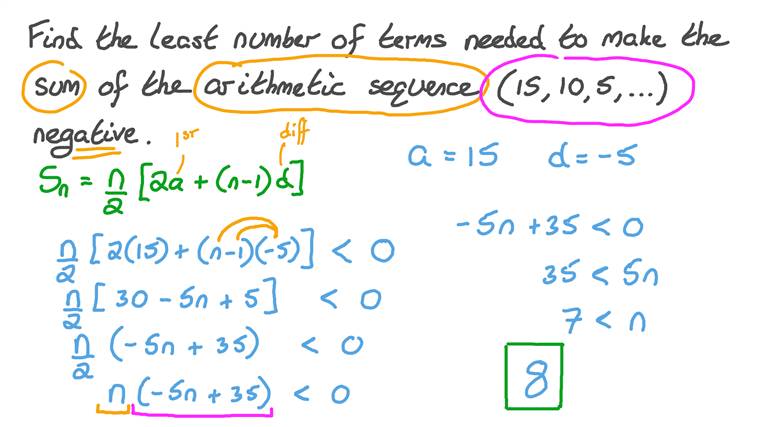 Find the least number of terms needed to make the
sum of the arithmetic sequence (15, 10, 5, ...)
negative.
1st diff
Sn = n/2 [2a + (n-1)d]
a = 15 d = -5
n/2 [2(15) + (n-1)(-5)] < 0
n/2 [30 - 5n + 5] < 0
n/2 (-5n + 35) < 0
n (-5n + 35) < 0
-5n + 35 < 0
35 < 5n
7 < n
8